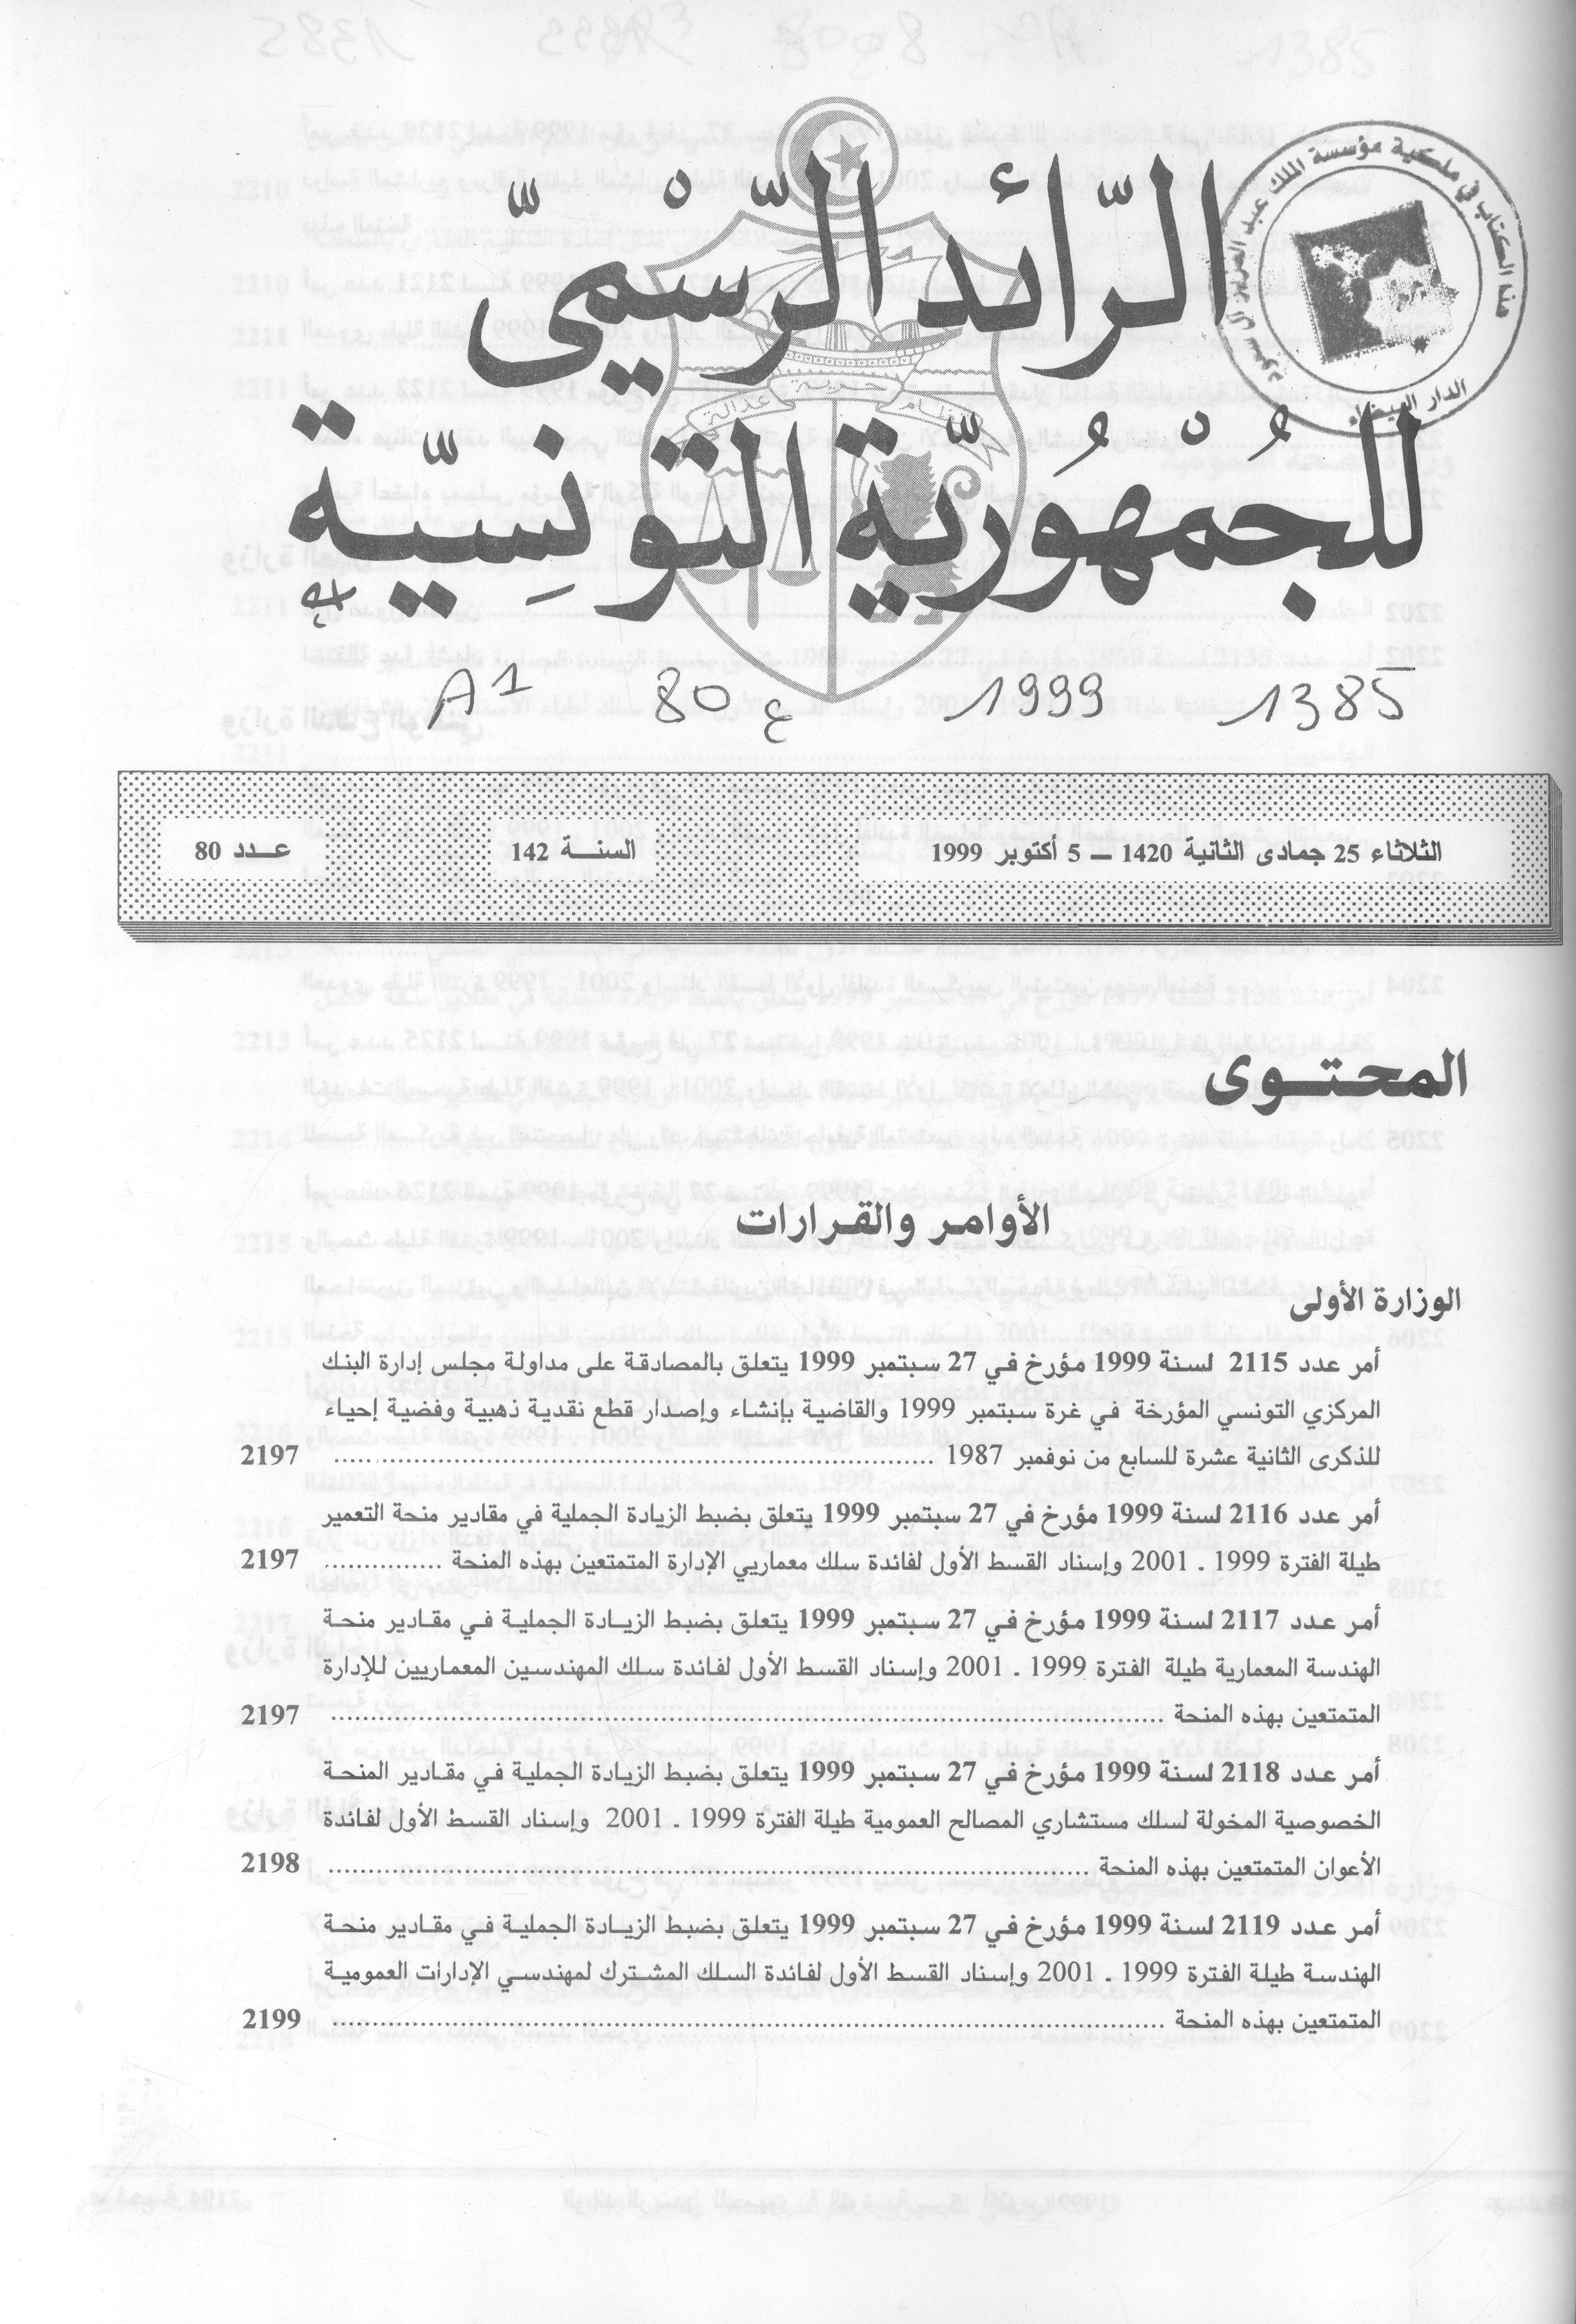 هذا الكتاب في ملكية مؤسسة الملك عبد العزيز آل سعود
الدار البيضاء
الرّائد الرّسْميّ
نظام حرية عدالة
للجُمْهُوريّة التّونِسيّة
1385 1999 80 ع A1
الثلاثاء 25 جمادى الثانية 1420 – 5 أكتوبر 1999 السنة 142 عدد 80
المحتوى
الأوامر والقرارات
الوزارة الأولى
أمر عدد 2115 لسنة 1999 مؤرخ في 27 سبتمبر 1999 يتعلق بالمصادقة على مداولة مجلس إدارة البنك
المركزي التونسي المؤرخة في غرة سبتمبر 1999 والقاضية بإنشاء وإصدار قطع نقدية ذهبية وفضية إحياء
للذكرى الثانية عشرة للسابع من نوفمبر 1987 ........ 2197
أمر عدد 2116 لسنة 1999 مؤرخ في 27 سبتمبر 1999 يتعلق بضبط الزيادة الجملية في مقادير منحة التعمير
طيلة الفترة 1999 ـ 2001 وإسناد القسط الأول لفائدة سلك معماريي الإدارة المتمتعين بهذه المنحة ........ 2197
أمر عدد 2117 لسنة 1999 مؤرخ في 27 سبتمبر 1999 يتعلق بضبط الزيادة الجملية في مقادير منحة
الهندسة المعمارية طيلة الفترة 1999 ـ 2001 وإسناد القسط الأول لفائدة سلك المهندسين المعماريين للإدارة
المتمتعين بهذه المنحة ........ 2197
أمر عدد 2118 لسنة 1999 مؤرخ في 27 سبتمبر 1999 يتعلق بضبط الزيادة الجملية في مقادير المنحة
الخصوصية المخولة لسلك مستشاري المصالح العمومية طيلة الفترة 1999 ـ 2001 وإسناد القسط الأول لفائدة
الأعوان المتمتعين بهذه المنحة ........ 2198
أمر عدد 2119 لسنة 1999 مؤرخ في 27 سبتمبر 1999 يتعلق بضبط الزيادة الجملية في مقادير منحة
الهندسة طيلة الفترة 1999 ـ 2001 وإسناد القسط الأول لفائدة السلك المشترك لمهندسي الإدارات العمومية
المتمتعين بهذه المنحة ........ 2199